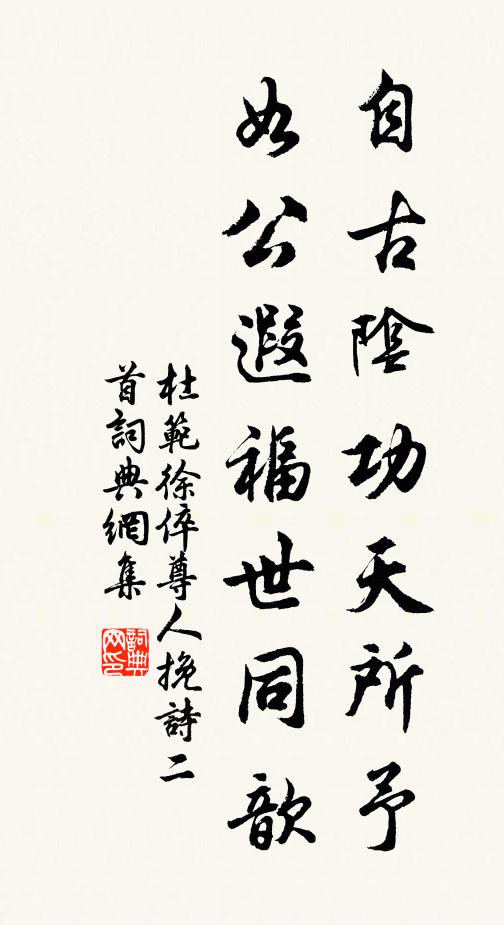 自古陰功天所予
如公遐福世同歆
杜範徐倅尊人挽詩二
首詞典網集
詞典网印